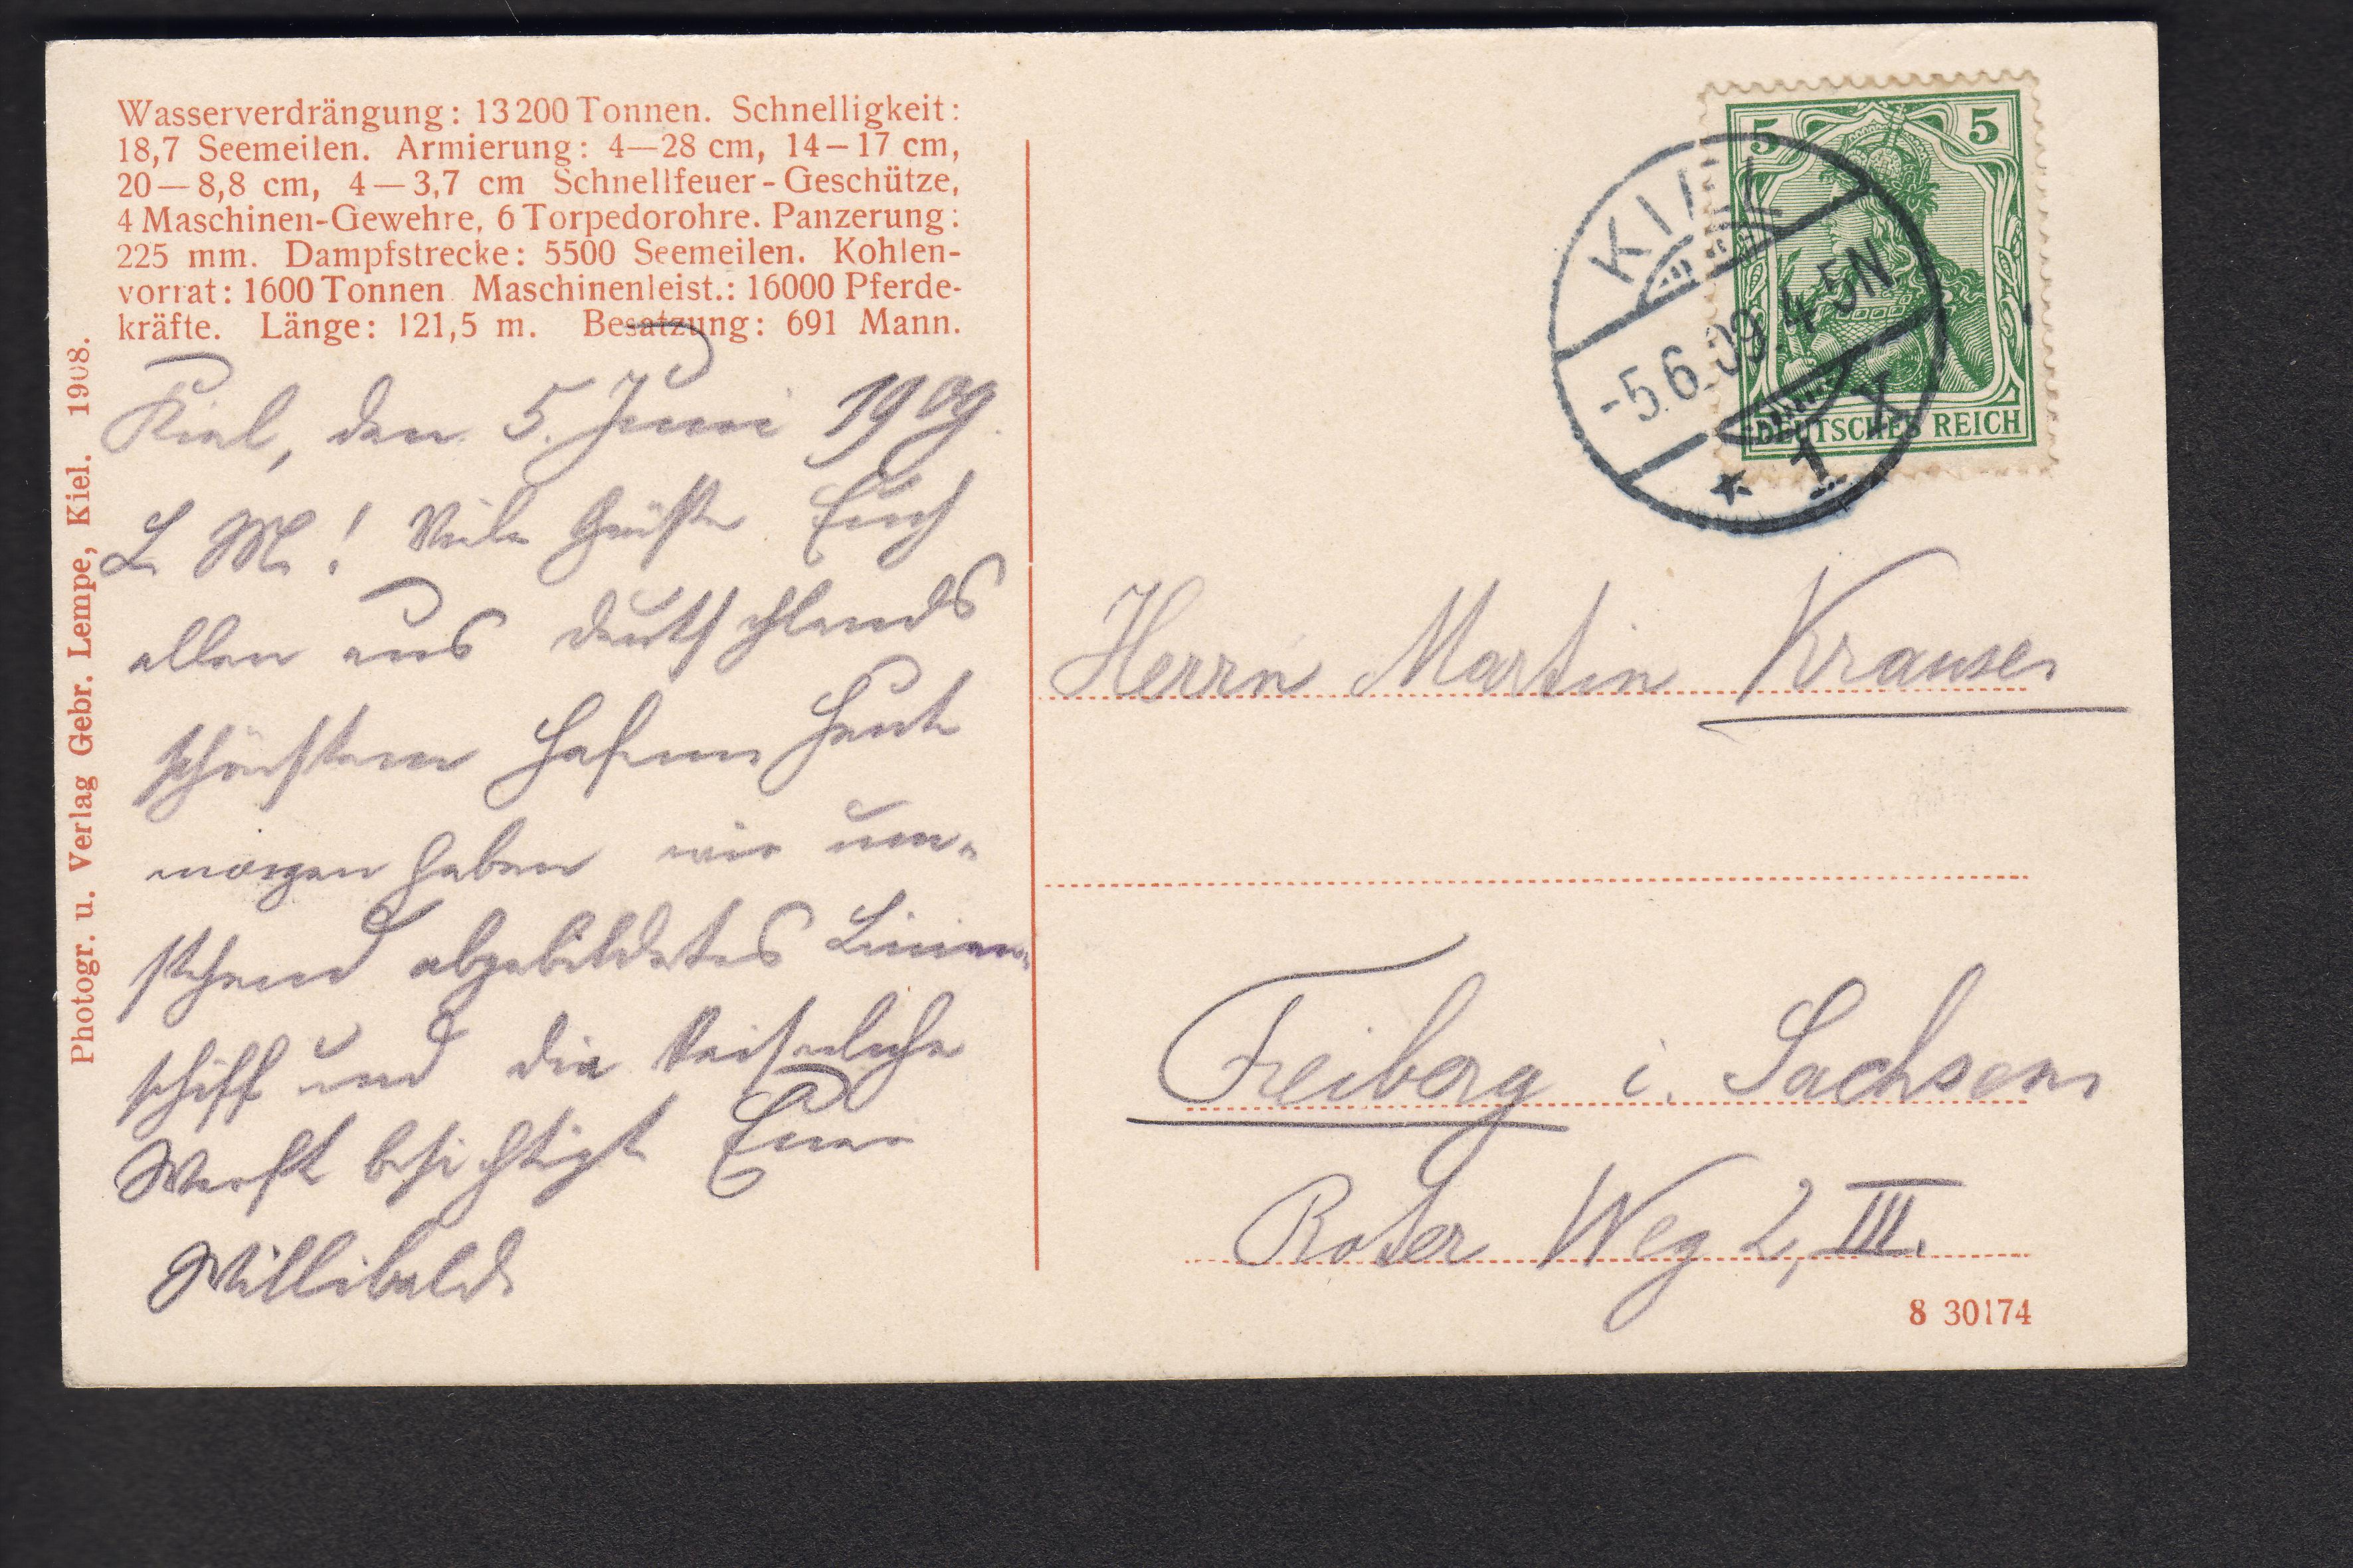 Wasserverdrängung: 13200 Tonnen. Schnelligkeit:
18,7 Seemeilen. Armierung: 4—28 cm, 14–17 cm,
20—8,8 cm, 4—3,7 cm Schnellfeuer-Geschütze,
4 Maschinen-Gewehre, 6 Torpedorohre. Panzerung:
225 mm. Dampfstrecke: 5500 Seemeilen. Kohlen-
vorrat: 1600 Tonnen Maschinenleist.: 16000 Pferde-
kräfte. Länge: 121,5 m. Besatzung: 691 Mann.
Photogr. u. Verlag Gebr. Lempe, Kiel. 1908.
Kiel, den 5. Juni 1909.
L. M.! Viele Grüße Euch
allen aus Deutschlands
schönstem Hafen. Heute
morgen haben wir um-
stehend abgebildetes Linien-
schiff und die Kaiserliche
Werft besichtigt Euer
Willibald.
5 5
DEUTSCHES REICH
KIEL
-5.6.09.4-5N
* 1 X
Herrn Martin Krause
Freiberg i. Sachsen
Roter Weg 2, III.
8 30174